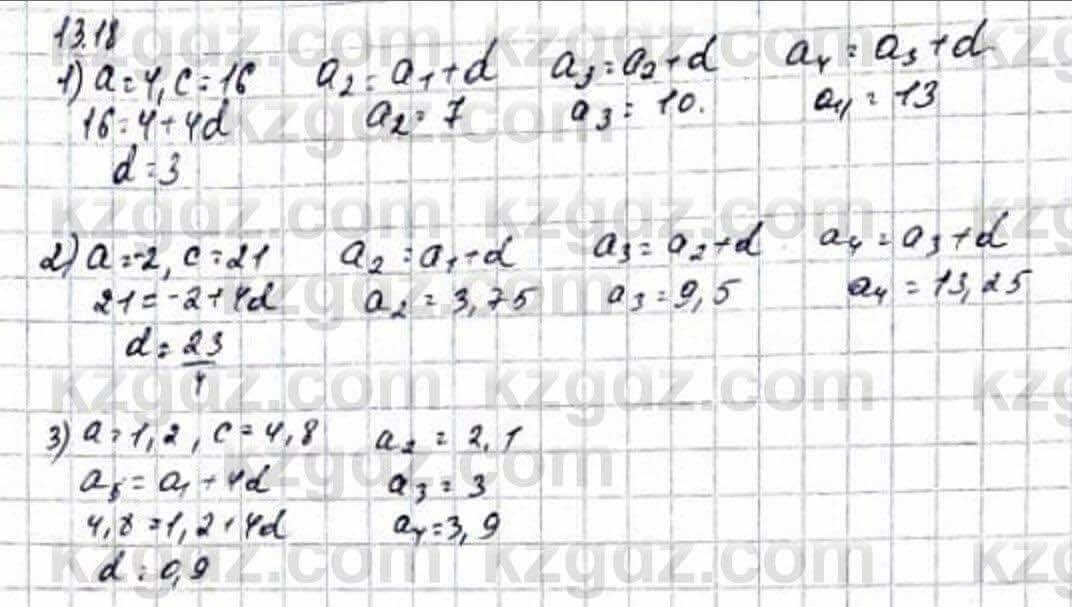 13.18
1) a=4, c=16   a₂=a₁+d   a₃=a₂+d   a₄=a₃+d
16=4+4d   a₂=7   a₃=10.   a₄=13
d=3
2) a=-2, c=21   a₂=a₁+d   a₃=a₂+d   a₄=a₃+d
21=-2+4d   a₂=3,75   a₃=9,5   a₄=13,25
d=23/4
3) a=1,2, c=4,8   a₂=2,1
a₅=a₁+4d   a₃=3
4,8=1,2+4d   a₄=3,9
d=0,9
kzgdz.com kzgdz.com kzgdz.com
kzgdz.com kzgdz.com kzgdz.com
kzgdz.com kzgdz.com kzgdz.com
kzgdz.com kzgdz.com kzgdz.com